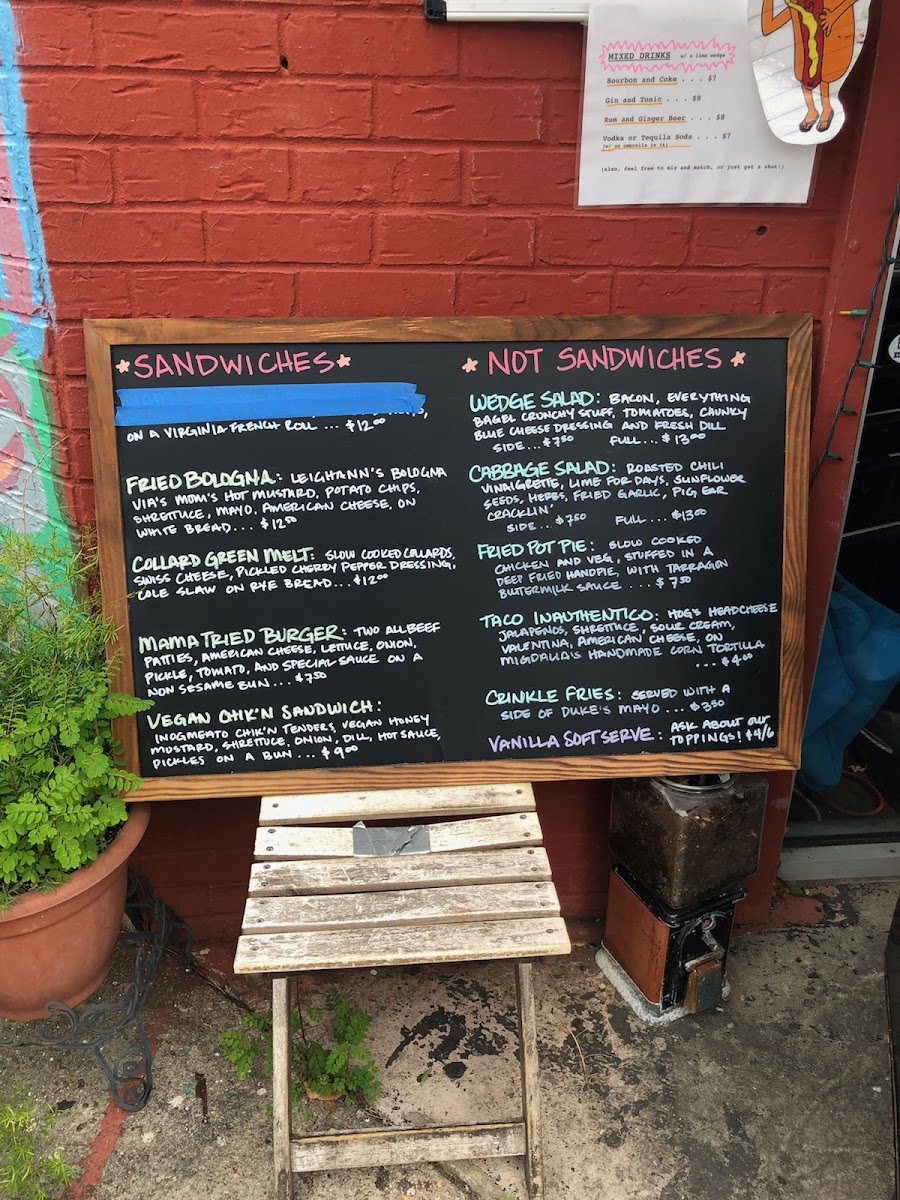 MIXED DRINKS w/ a lime wedge
Bourbon and Coke . . . $7
Gin and Tonic . . . $8
Rum and Ginger Beer . . . $8
Vodka or Tequila Soda . . . $7
(w/ an umbrella in it)
(also, feel free to mix and match, or just get a shot!)
SANDWICHES
ON A VIRGINIA FRENCH ROLL ... $12.00
FRIED BOLOGNA: LEIGHANN'S BOLOGNA
VIA'S MOM'S HOT MUSTARD, POTATO CHIPS,
SHRETTUCE, MAYO, AMERICAN CHEESE, ON
WHITE BREAD... $12.00
COLLARD GREEN MELT: SLOW COOKED COLLARDS,
SWISS CHEESE, PICKLED CHERRY PEPPER DRESSING,
COLE SLAW ON RYE BREAD...$12.00
MAMA TRIED BURGER: TWO ALL BEEF
PATTIES, AMERICAN CHEESE, LETTUCE, ONION,
PICKLE, TOMATO, AND SPECIAL SAUCE ON A
NON SESAME BUN ... $7.50
VEGAN CHIK'N SANDWICH:
INOGMEATO CHIK'N TENDERS, VEGAN HONEY
MUSTARD, SHRETTUCE, ONION, DILL, HOT SAUCE,
PICKLES ON A BUN ... $9.00
NOT SANDWICHES
WEDGE SALAD: BACON, EVERYTHING
BAGEL CRUNCHY STUFF, TOMATOES, CHUNKY
BLUE CHEESE DRESSING AND FRESH DILL
SIDE...$7.50 FULL...$13.00
CABBAGE SALAD: ROASTED CHILI
VINAIGRETTE, LIME FOR DAYS, SUNFLOWER
SEEDS, HERBS, FRIED GARLIC, PIG EAR
CRACKLIN'
SIDE...$7.50 FULL...$13.00
FRIED POT PIE: SLOW COOKED
CHICKEN AND VEG, STUFFED IN A
DEEP FRIED HANDPIE, WITH TARRAGON
BUTTERMILK SAUCE ....$7.50
TACO INAUTHENTICO: HOG'S HEADCHEESE
JALAPENOS, SHRETTUCE, SOUR CREAM,
VALENTINA, AMERICAN CHEESE, ON
MIGDALIA'S HANDMADE CORN TORTILLA
...$4.00
CRINKLE FRIES: SERVED WITH A
SIDE OF DUKE'S MAYO ... $3.50
VANILLA SOFT SERVE: ASK ABOUT OUR
TOPPINGS! $4/6